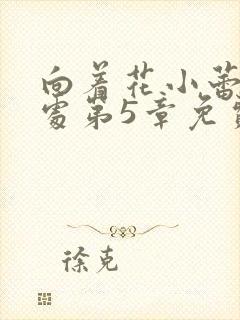 向着花小蕾
处第5章免费
徐克